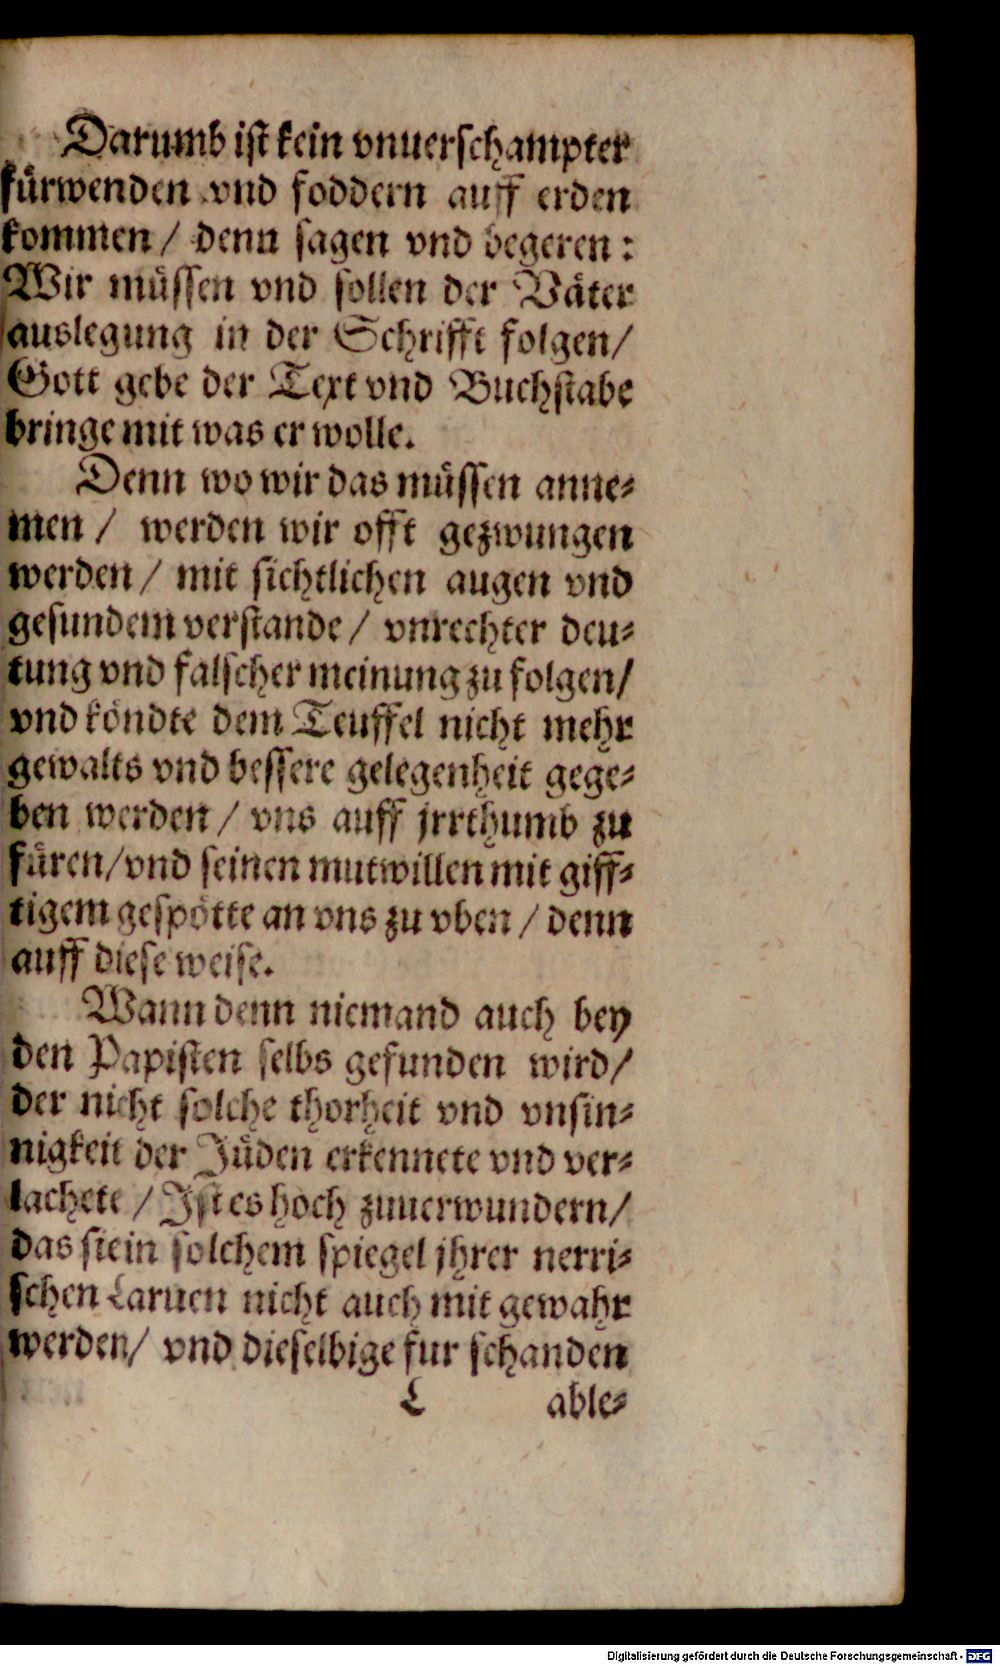 Darumb ist kein vnuerschampter
fürwenden vnd foddern auff erden
kommen / denn sagen vnd begeren :
Wir müssen vnd sollen der Väter
auslegung in der Schrifft folgen/
Gott gebe der Text vnd Buchstabe
bringe mit was er wolle.
Denn wo wir das müssen anne-
men / werden wir offt gezwungen
werden / mit sichtlichen augen vnd
gesundem verstande / vnrechter deu-
tung vnd falscher meinung zu folgen/
vnd köndte dem Teuffel nicht mehr
gewalts vnd bessere gelegenheit gege-
ben werden / vns auff jrrthumb zu
füren/vnd seinen mutwillen mit giff-
tigem gespötte an vns zu vben / denn
auff diese weise.
Wann denn niemand auch bey
den Papisten selbs gefunden wird/
der nicht solche thorheit vnd vnsin-
nigkeit der Jüden erkennete vnd ver-
lachete / Jst es hoch zuuerwundern/
das sie in solchem spiegel jhrer nerri-
schen Laruen nicht auch mit gewahr
werden/ vnd dieselbige fur schanden
L able-
Digitalisierung gefördert durch die Deutsche Forschungsgemeinschaft - DFG